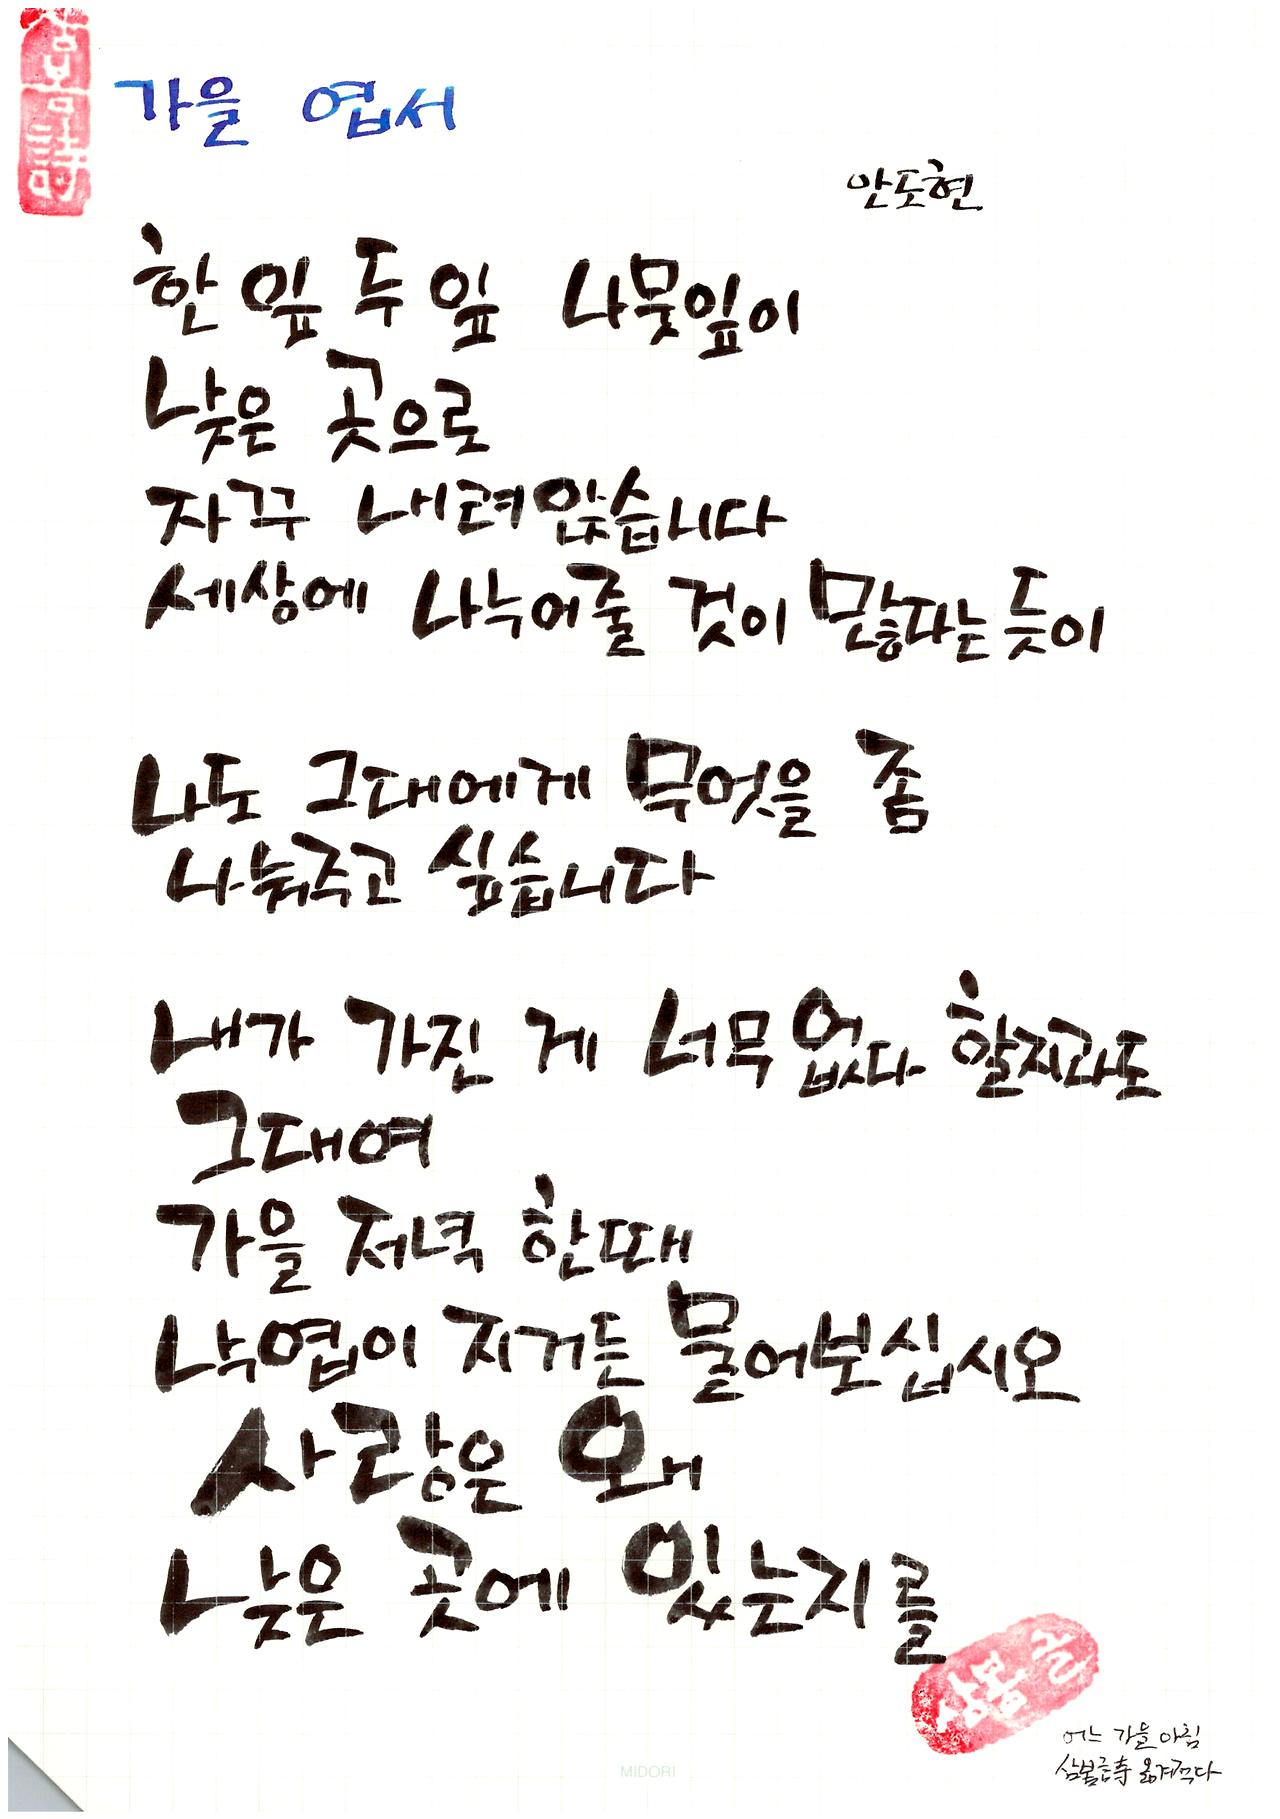 가을 엽서
안도현
한 잎 두 잎 나뭇잎이
낮은 곳으로
자꾸 내려앉습니다
세상에 나누어줄 것이 많다는 듯이
나도 그대에게 무엇을 좀
나눠주고 싶습니다
내가 가진 게 너무 없다 할지라도
그대여
가을 저녁 한때
낙엽이 지거든 물어보십시오
사랑은 왜
낮은 곳에 있는지를
어느 가을 아침
옮겨적다
MIDORI